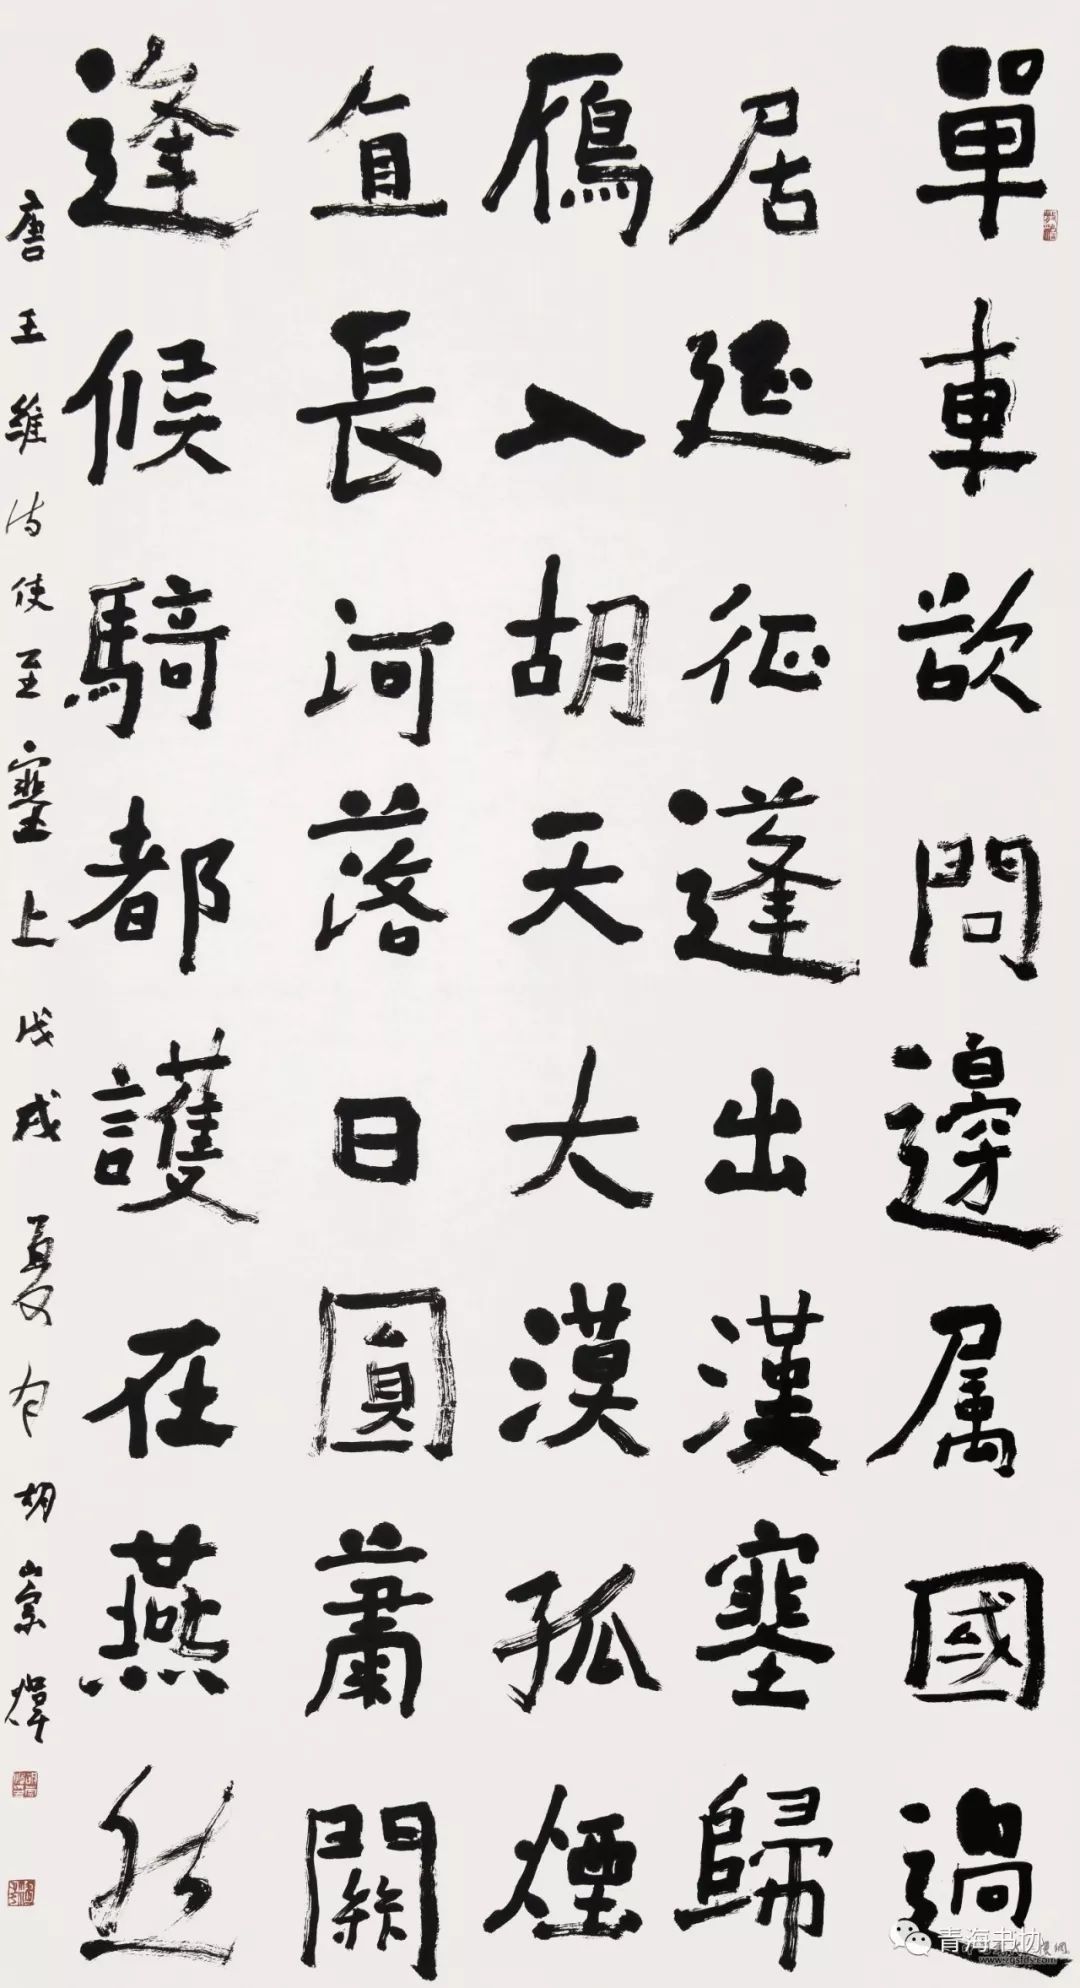 單車欲問邊属國過
居延征蓬出漢塞歸
鴈入胡天大漠孤煙
直長河落日圓蕭關
逢候騎都護在燕然
唐王維诗使至塞上戊戌夏胡崇煒
青海书协